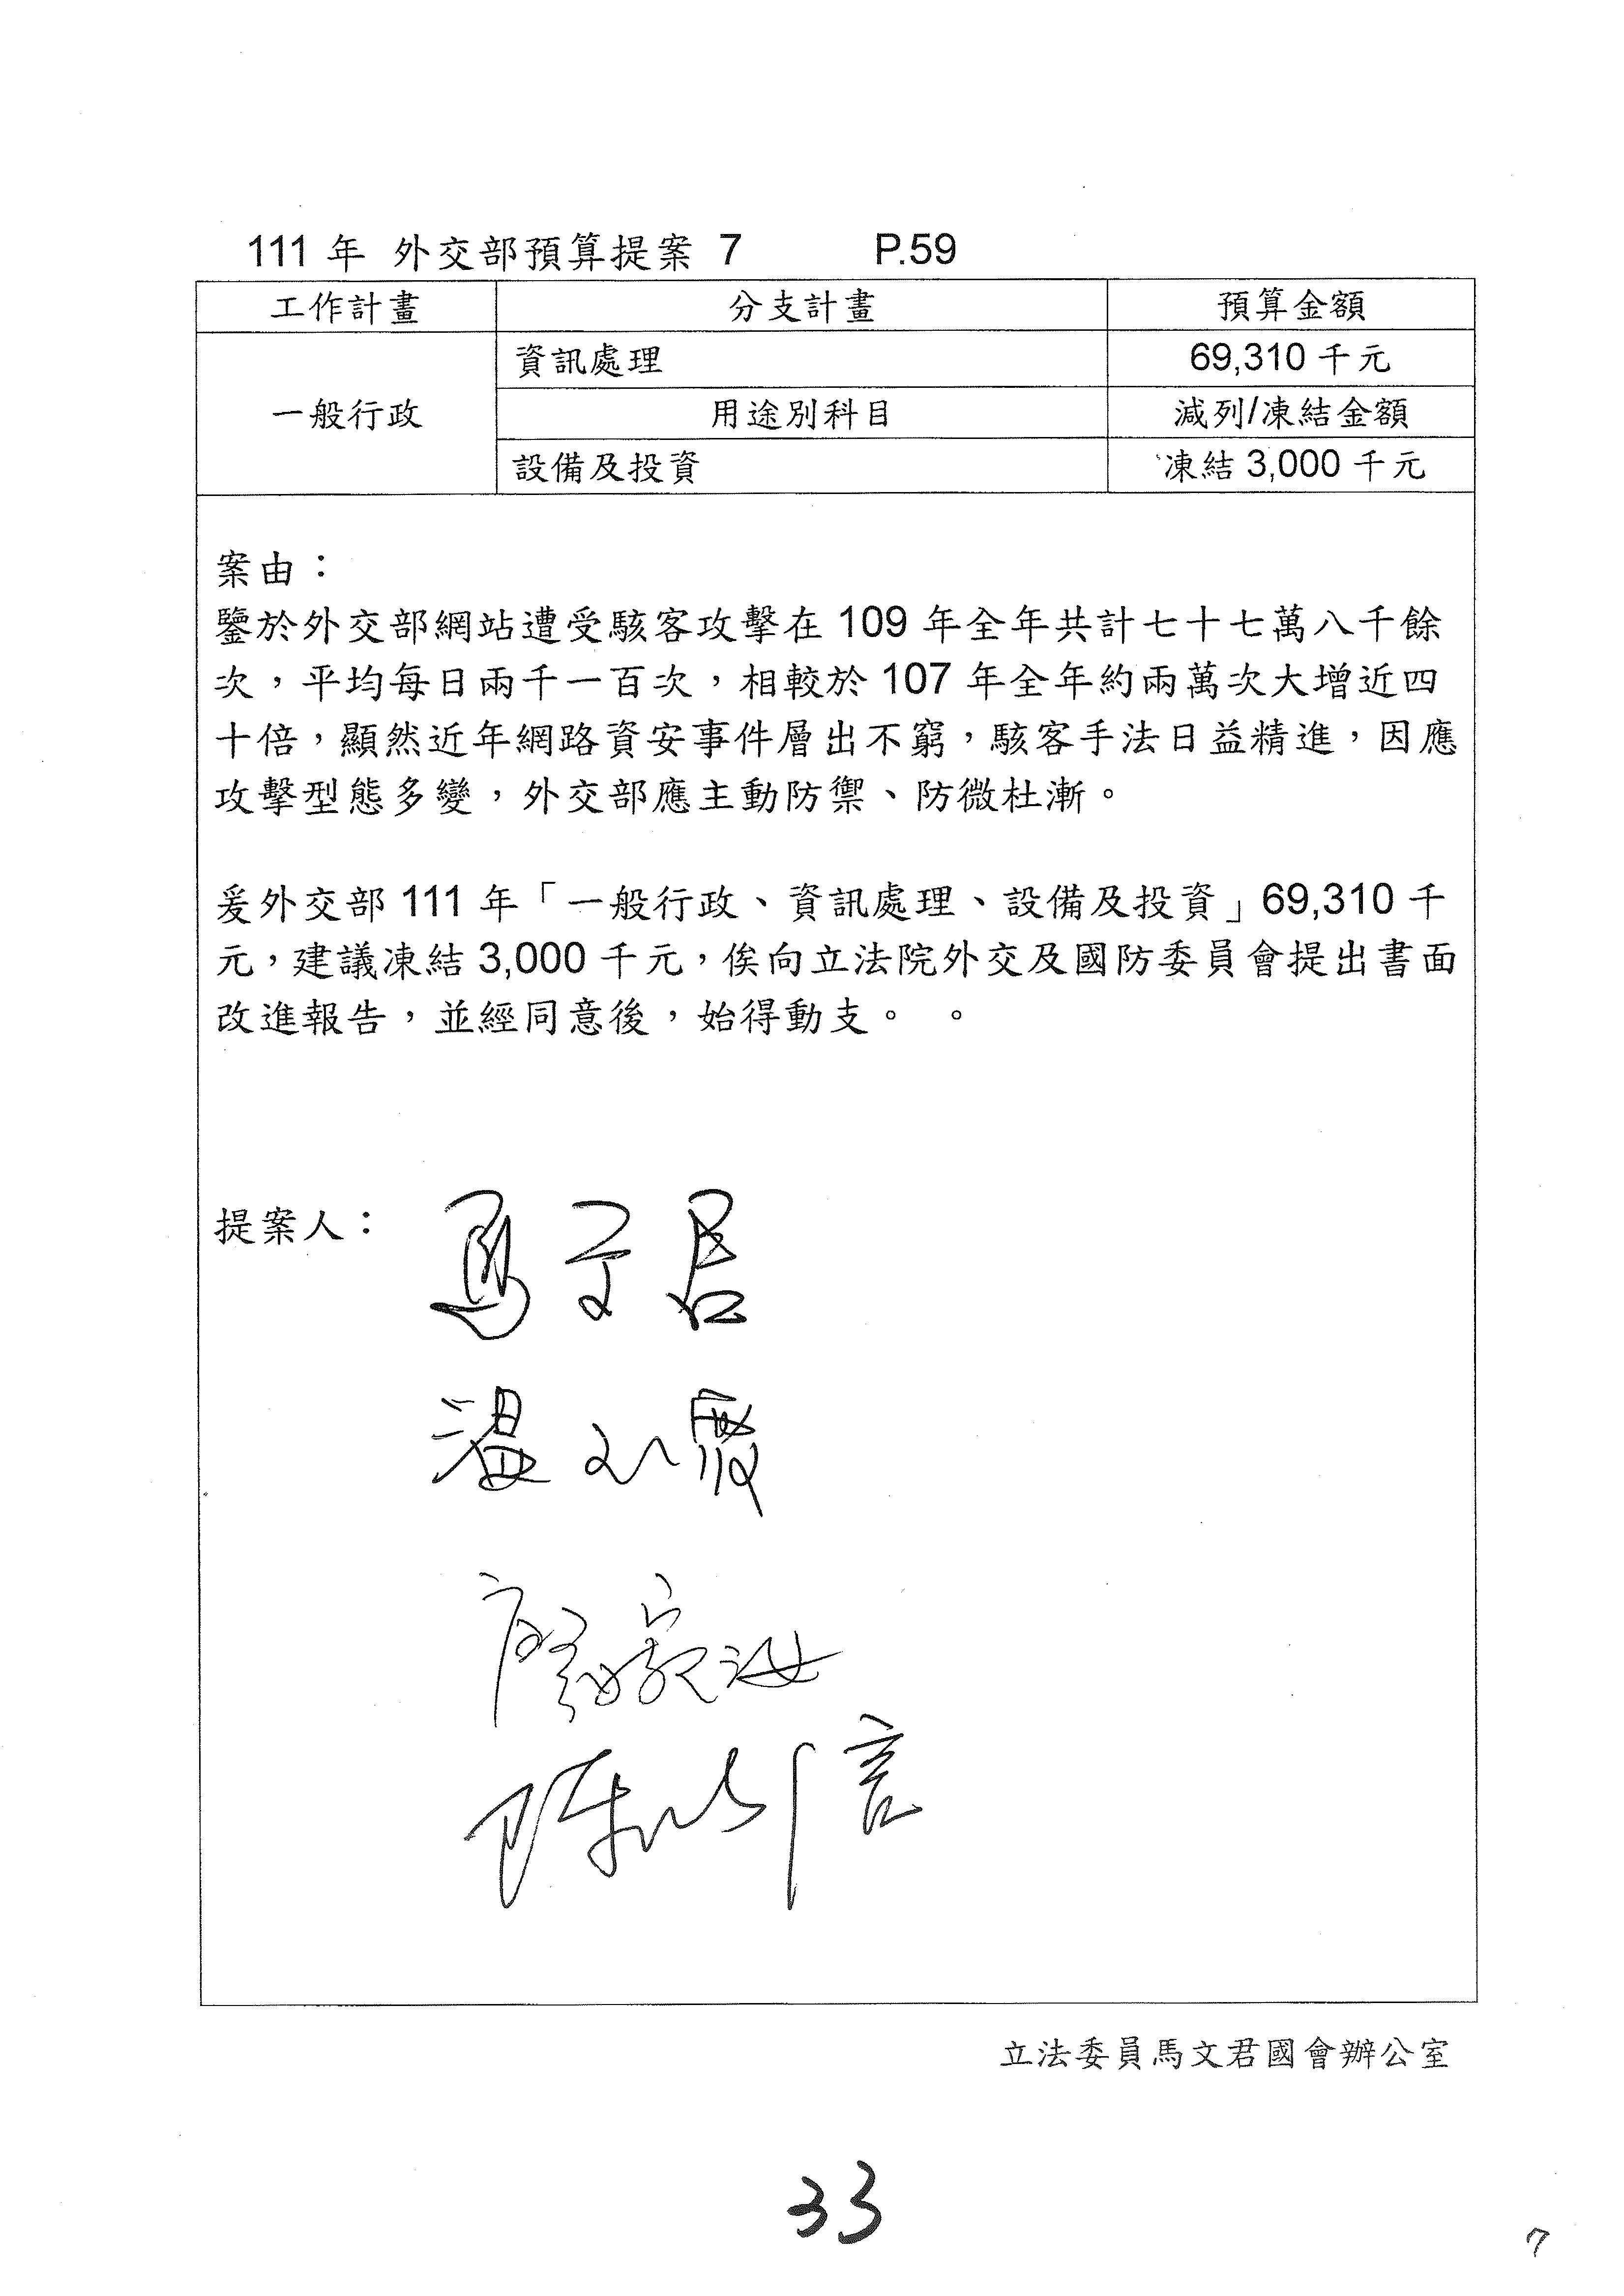 111 年 外交部預算提案 7 P.59
工作計畫 分支計畫 預算金額
資訊處理 69,310 千元
一般行政 用途別科目 減列/凍結金額
設備及投資 凍結 3,000 千元
案由：
鑒於外交部網站遭受駭客攻擊在 109 年全年共計七十七萬八千餘
次，平均每日兩千一百次，相較於 107 年全年約兩萬次大增近四
十倍，顯然近年網路資安事件層出不窮，駭客手法日益精進，因應
攻擊型態多變，外交部應主動防禦、防微杜漸。
爰外交部 111 年「一般行政、資訊處理、設備及投資」69,310 千
元，建議凍結 3,000 千元，俟向立法院外交及國防委員會提出書面
改進報告，並經同意後，始得動支。 。
提案人：
馬文君
溫玉霞
廖婉汝
陳以信
立法委員馬文君國會辦公室
33
7